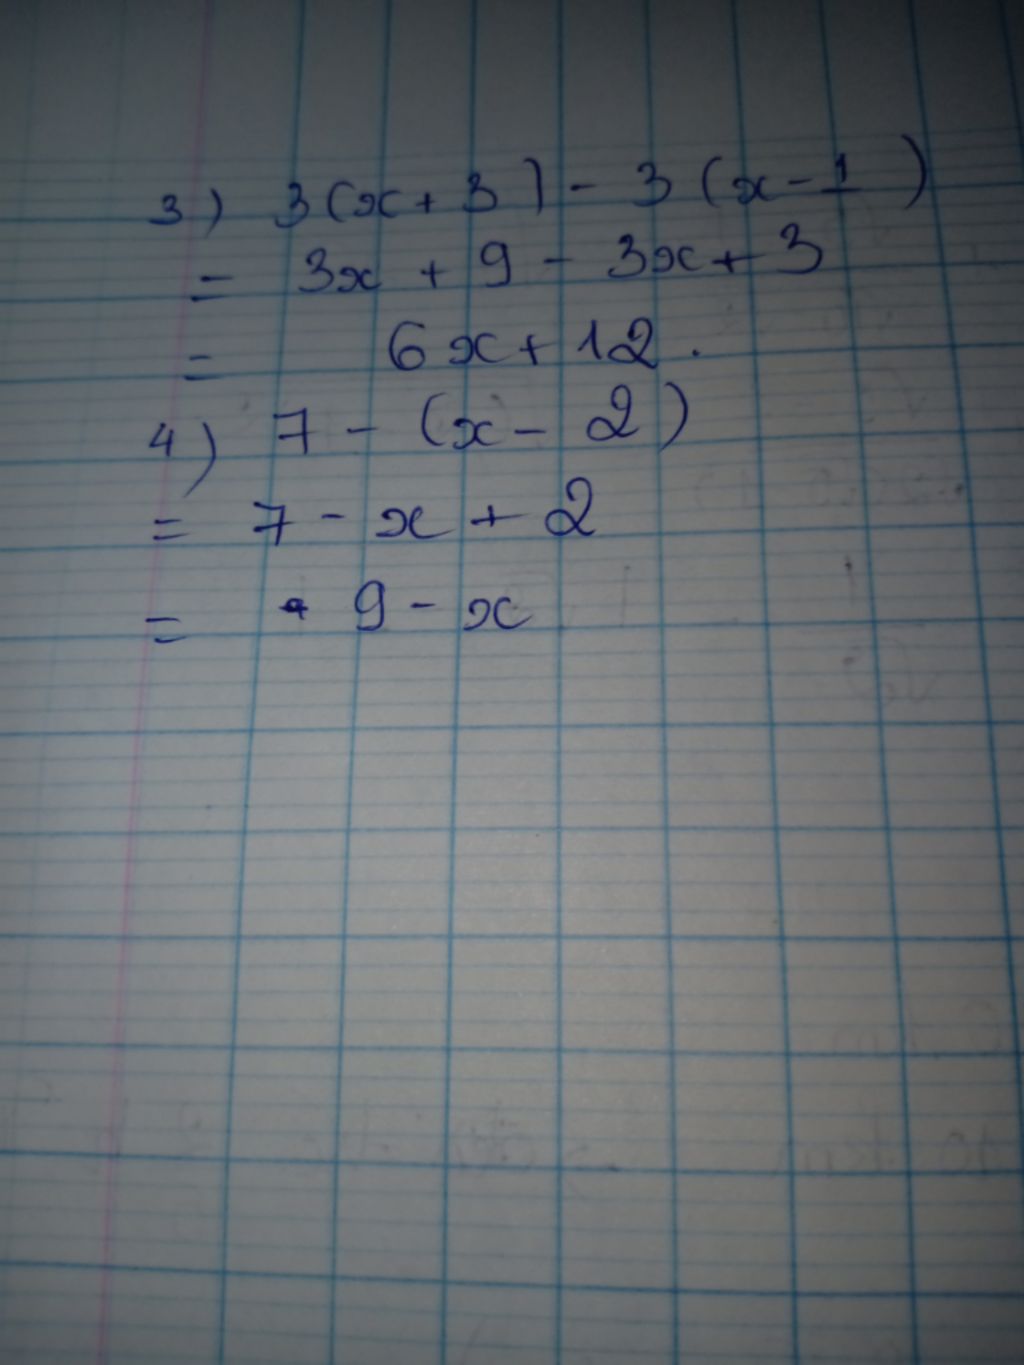 3) 3(x + 3) - 3 (x - 1)
= 3x + 9 - 3x + 3
= 6x + 12.
4) 7 - (x - 2)
= 7 - x + 2
= 9 - x